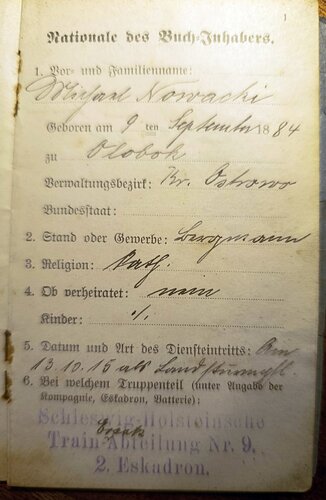 1
Nationale des Buch-Inhabers.
1. Vor- und Familienname:
Michael Nowacki
Geboren am 9 ten September 1884
zu Olobok
Verwaltungsbezirk: Kr. Ostrowo
Bundesstaat:
2. Stand oder Gewerbe: Bergmann
3. Religion: Kath.
4. Ob verheiratet: nein
Kinder: ./.
5. Datum und Art des Diensteintritts: Am
13.10.15 als
6. Bei welchem Truppenteil (unter Angabe der
Kompagnie, Eskadron, Batterie):
Schleswig-Holsteinsche
Ersatz
Train-Abteilung Nr. 9.
2. Eskadron.